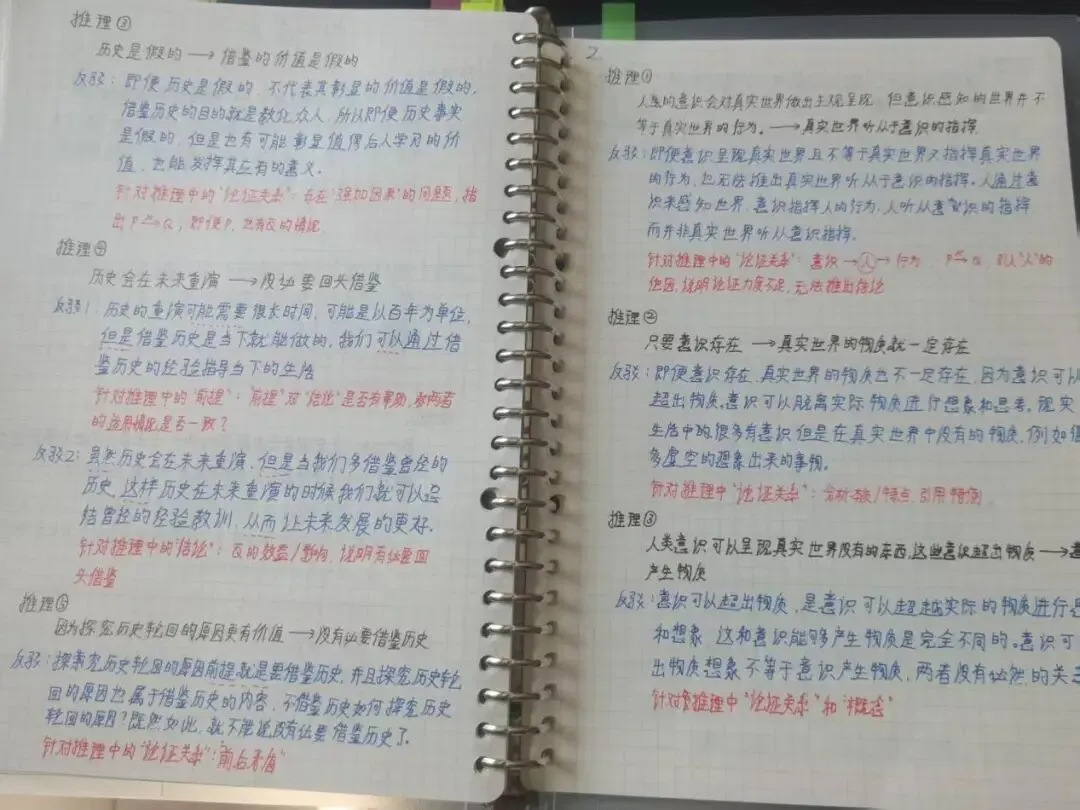 推理③
历史是假的 → 借鉴的价值是假的
反驳：即便历史是假的，不代表其彰显的价值是假的，
借鉴历史的目的就是教化众人，所以即便历史事实
是假的，但是也有可能彰显值得后人学习的价
值，也能发挥其应有的意义。
针对推理中的"论证关系"：存在"强加因果"的问题，指
出 P→Q，即便P，也有Q的情况
推理④
历史会在未来重演 → 没必要回头借鉴
反驳1：历史的重演可能需要很长时间，可能是以百年为单位，
但是借鉴历史是当下就能做的，我们可以通过借
鉴历史的经验指导当下的生活
针对推理中的"前提"："前提"对"结论"是否有帮助，两者
的适用情况是否一致？
反驳2：虽然历史会在未来重演，但是当我们多借鉴曾经的
历史，这样历史在未来重演的时候我们就可以总
结曾经的经验教训，从而让未来发展的更好。
针对推理中的"结论"：Q的效益/影响，说明有必要回
头借鉴
推理⑤
因为探究历史轮回的原因更有价值 → 没有必要借鉴历史
反驳：探索究历史轮回的原因前提就是要借鉴历史，并且探究历史轮
回的原因也属于借鉴历史的内容，不借鉴历史如何探究历史
轮回的原因？既然如此，就不能说没有必要借鉴历史了。
针对推理中的"论证关系"："前后矛盾"
2
推理①
人类的意识会对真实世界做出主观呈现，但意识感知的世界并不
等于真实世界的行为。→ 真实世界听从于意识的指挥
反驳：即便意识呈现真实世界且不等于真实世界又指挥真实世界
的行为，也无法推出真实世界听从于意识的指挥。人通过意
识来感知世界，意识指挥人的行为，人听从意识的指挥
而并非真实世界听从意识指挥。
针对推理中的"论证关系"：意识→人→行为，P→Q，引入"人"的
他因，说明论证力度不足，无法推出结论
推理②
只要意识存在 → 真实世界的物质就一定存在
反驳：即便意识存在，真实世界的物质也不一定存在，因为意识可以
超出物质，意识可以脱离实际物质进行想象和思考，现实
生活中的很多有意识但是在真实世界中没有的物质，例如很
多虚空的想象出来的事物。
针对推理中"论证关系"：分析本质/特点，引用特例
推理③
人类意识可以呈现真实世界没有的东西，这些意识超出物质 → 意
产生物质
反驳：意识可以超出物质，是意识可以超越实际的物质进行思
和想象，这和意识能够产生物质是完全不同的。意识可
出物质想象不等于意识产生物质，两者没有必然的关
针对推理中"论证关系"和"概念"